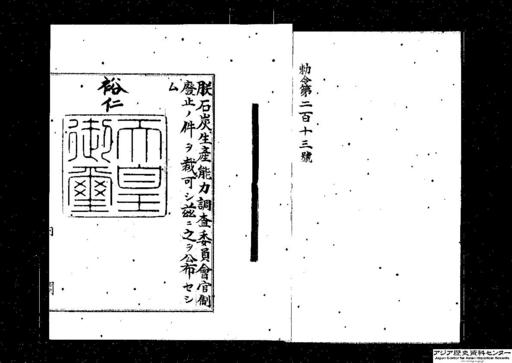 勅令第二百十三號
朕石炭生産能力調査委員會官制
廢止ノ件ヲ裁可シ茲ニ之ヲ公布セシ
ム
裕仁
天皇
御璽
アジア歴史資料センター
Japan Center for Asian Historical Records